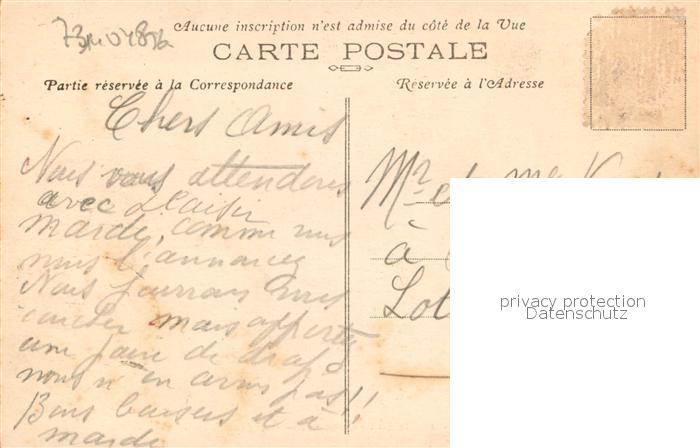 73M04856
Aucune inscription n'est admise du côté de la Vue
CARTE POSTALE
Partie réservée à la Correspondance
Réservée à l'Adresse
Chers Amis
Nous vous attendons
avec plaisir
mardi, comme vous
nous l'annoncez
Nous pourrons vous
coucher mais apportez
une paire de draps
nous n'en avons pas!!
Bons baisers et à
mardi
Mr et me
à
Lot
privacy protection
Datenschutz